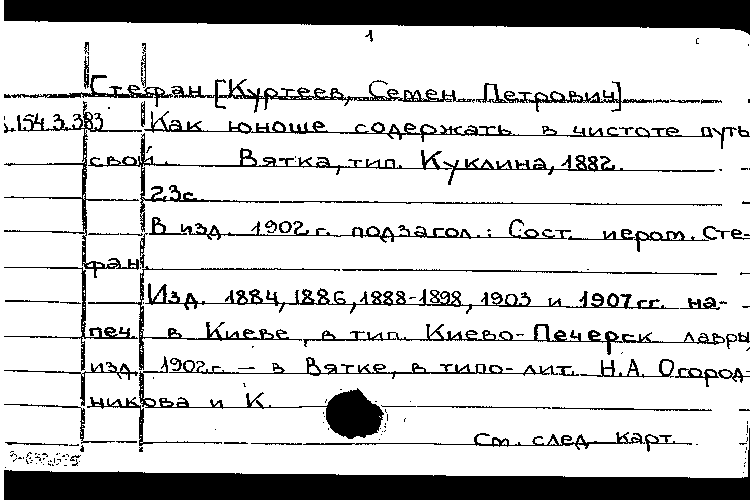 1
Стефан [Куртеев, Семен Петрович]
.154.3.383 Как юноше содержать в чистоте путь
свой. Вятка, тип. Куклина, 1882.
23с.
В изд. 1902 г. подзагол.: Сост. иером. Сте-
фан.
Изд. 1884, 1886, 1888-1898, 1903 и 1907 гг. на-
печ. в Киеве, в тип. Киево-Печерск лавры
изд. 1902г. – в Вятке, в типо-лит. Н.А. Огород-
никова и К.
См. след. карт.